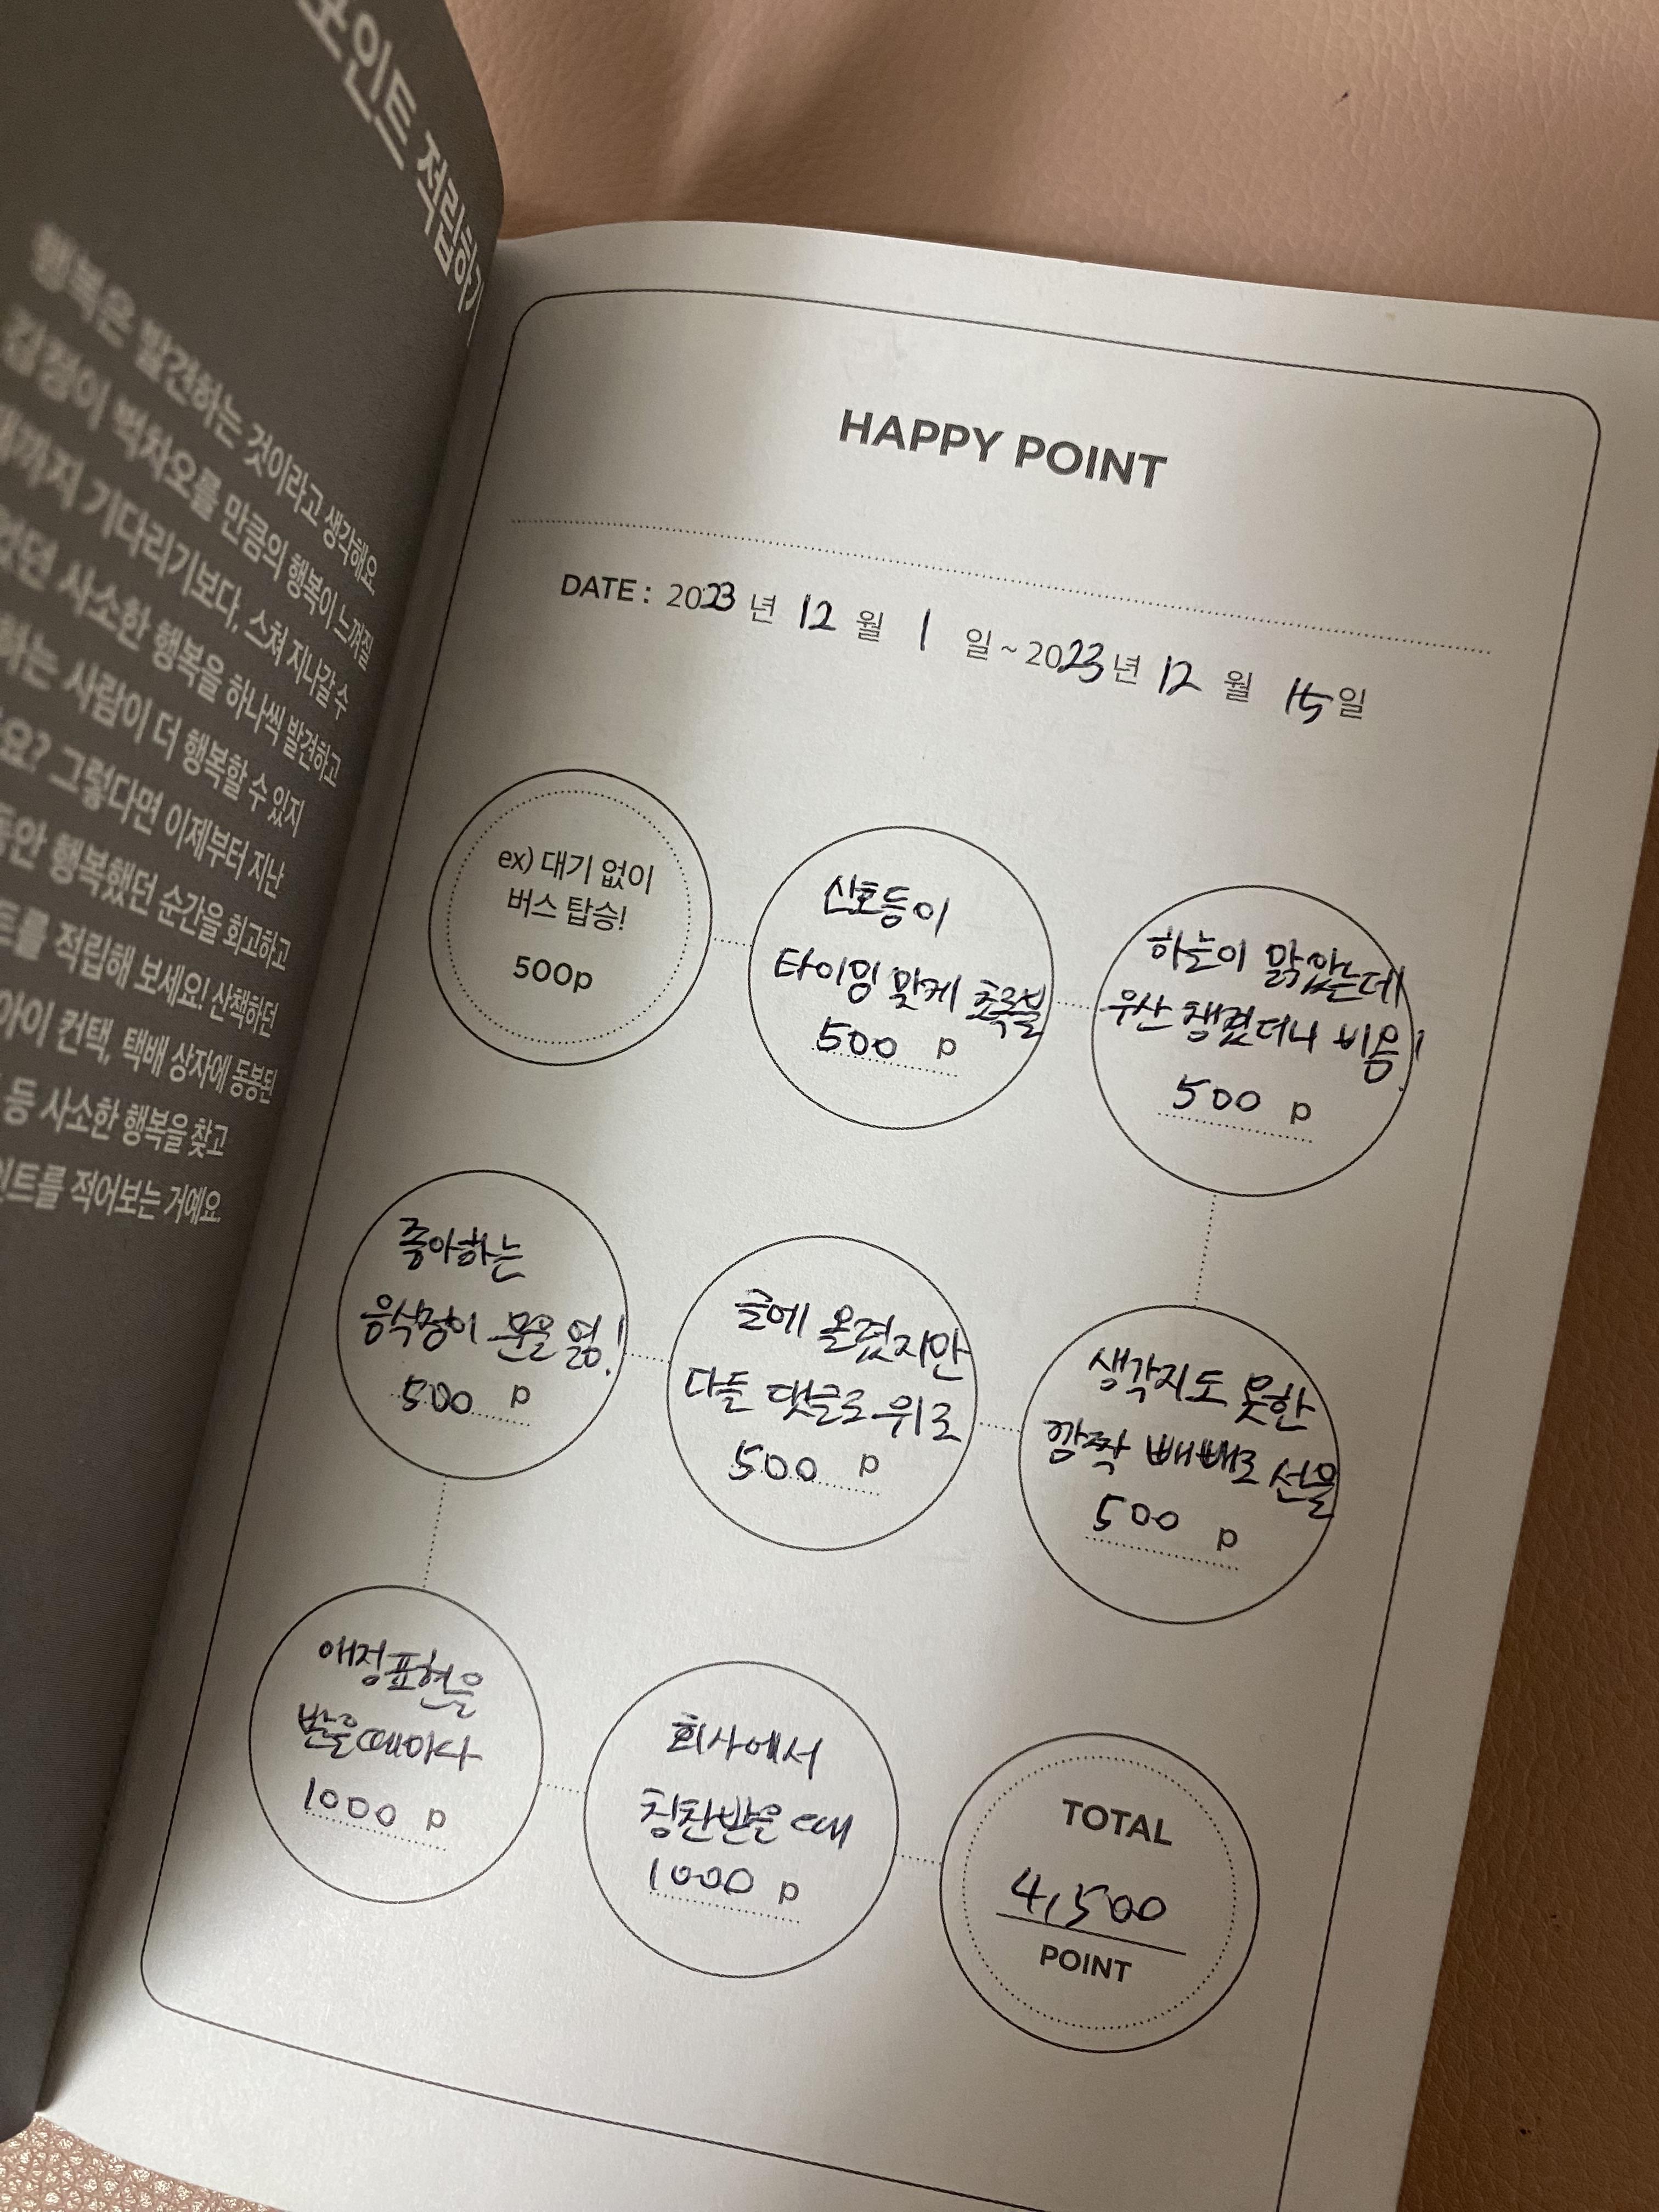 포인트 적립하기
행복은 발견하는 것이라고 생각해요
감정이 벅차오를 만큼의 행복이 느껴질
때까지 기다리기보다, 스쳐 지나갈 수
있었던 사소한 행복을 하나씩 발견하고
하는 사람이 더 행복할 수 있지
요? 그렇다면 이제부터 지난
동안 행복했던 순간을 회고하고
트를 적립해 보세요! 산책하던
아이 컨택, 택배 상자에 동봉된
등 사소한 행복을 찾고
인트를 적어보는 거예요.
HAPPY POINT
DATE : 2023 년 12 월 1 일 ~ 2023 년 12 월 15 일
ex) 대기 없이
버스 탑승!
500p
신호등이
타이밍 맞게 초록불
500 p
하늘이 맑았는데
우산 챙겼더니 비옴!
500 p
좋아하는
음식점이 문을 엶!
500 p
글에 올렸지만
다들 댓글로 위로
500 p
생각지도 못한
깜짝 빼빼로 선물
500 p
애정표현을
받을때마다
1000 p
회사에서
칭찬받을 때
1000 p
TOTAL
4,500
POINT